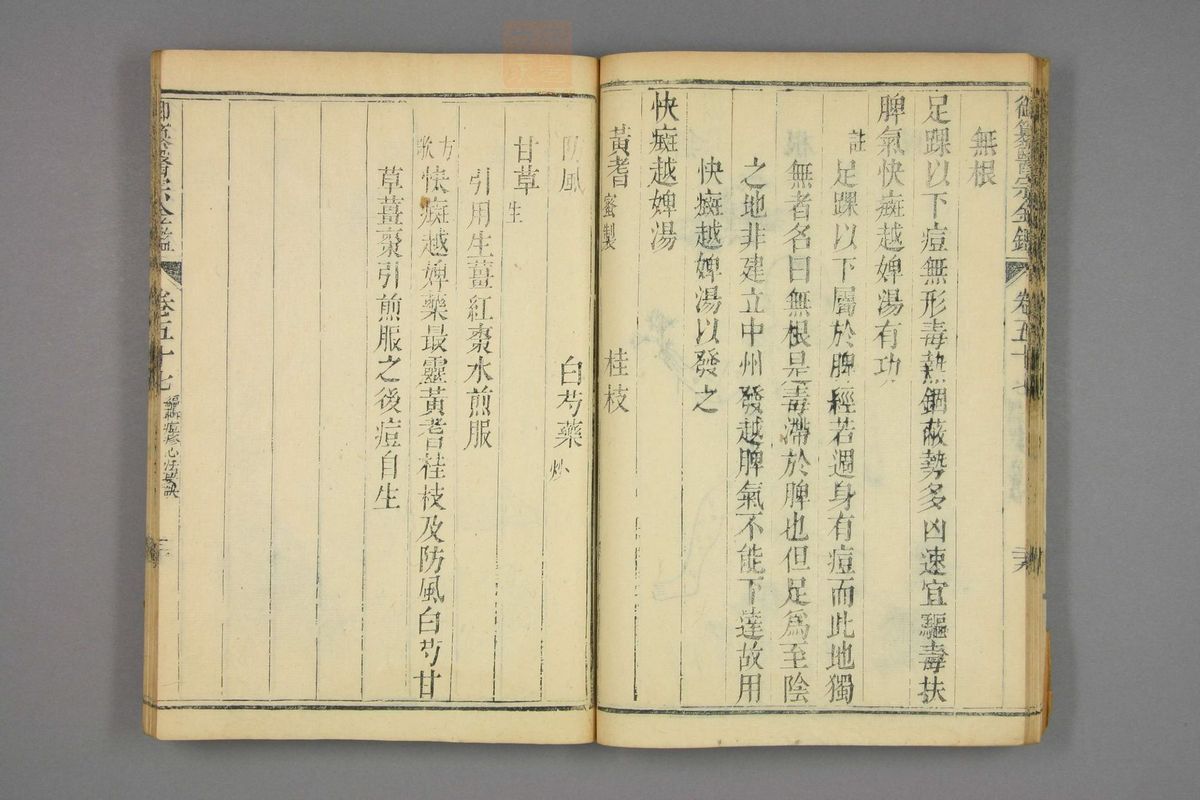 御纂醫宗金鑑 卷五十七
無根
足踝以下痘無形毒熱錮蔽勢多凶速宜驅毒扶
脾氣快癍越婢湯有功
註 足踝以下屬於脾經若週身有痘而此地獨
無者名曰無根是毒滯於脾也但足爲至陰
之地非建立中州發越脾氣不能下達故用
快癍越婢湯以發之
快癍越婢湯
黃耆 蜜製 桂枝
防風 白芍藥 炒
甘草 生
引用生薑紅棗水煎服
方歌 快癍越婢藥最靈黃耆桂枝及防風白芍甘
草薑棗引煎服之後痘自生
御纂醫宗金鑑 卷五十七 編輯痘疹心法要訣